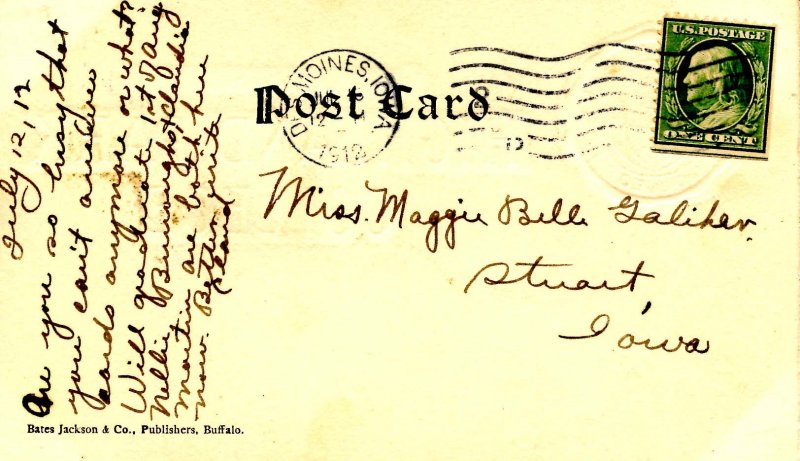 July 12, 12
Are you so busy that
you can't answer
cards anymore or what?
Will graduate 1st of Aug
Nellie Burroughs & Claudia
Martin are both here
now. Better write
Post Card
DES MOINES, IOWA
1912
U.S. POSTAGE
ONE CENT
Miss. Maggie Belle Galiher.
Stuart,
Iowa
Bates Jackson & Co., Publishers, Buffalo.